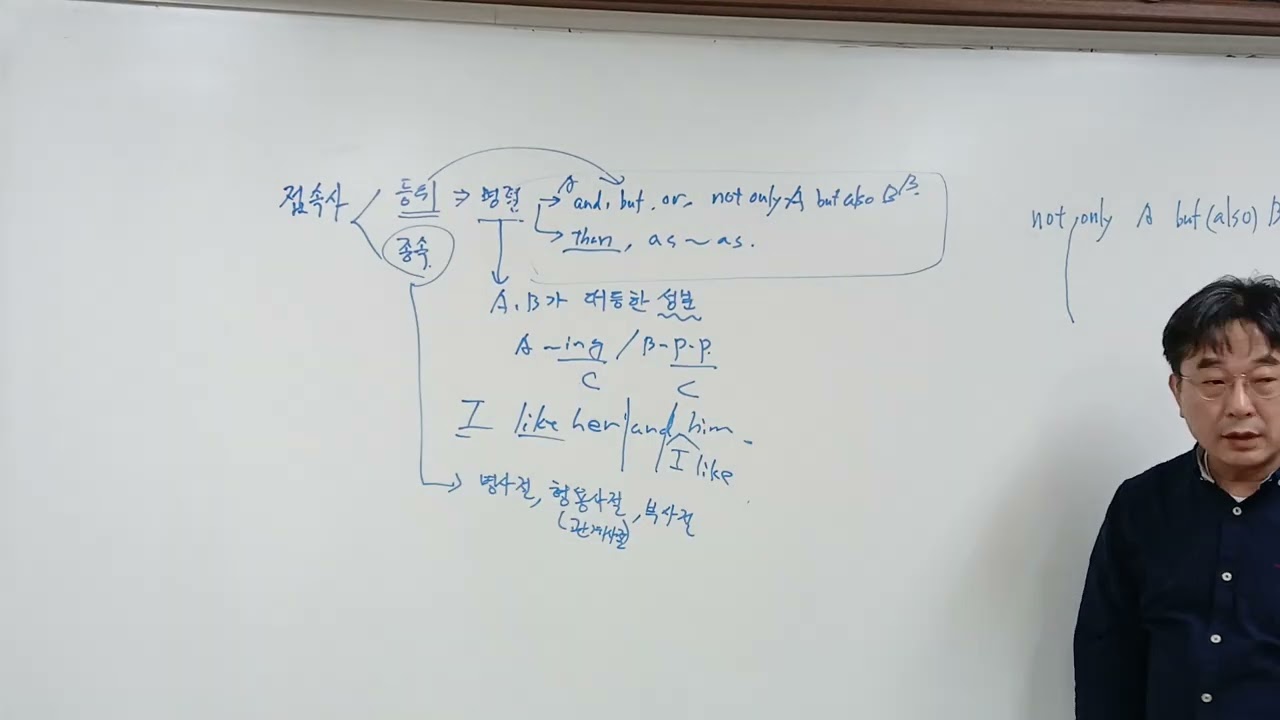 접속사 등위 ⇒ 병렬 → and, but, or, not only A but also B
종속 than, as ~ as.
A, B가 대등한 성분
A ~ing / B - p.p.
C C
I like her and him.
I like
명사절, 형용사절, 부사절
(관계사절)
not only A but (also) B